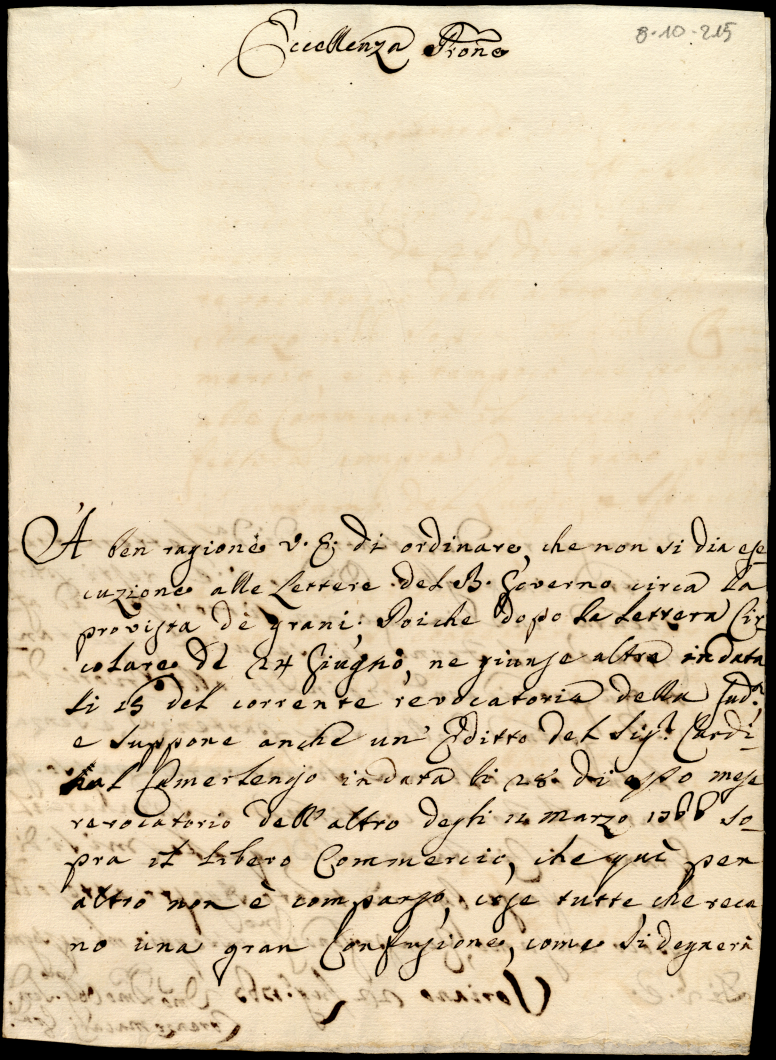 8-10-215
Eccellenza Prone
À ben ragione V. E. di ordinare, che non si dia ese
cuzione alle Lettere del B. Governo circa la
provista de grani; Poiche dopo la Lettera Cir
colare de 24 Giugno, ne giunse altra in data
li 15 del corrente revocatoria della sud.ª
e suppone anche un' Editto del Sig.r Cardi-
nal Camerlengo in data li 28. di esso mese
revocatorio dell' altro degli 11 marzo 1766 so-
pra il libero Commercio, che quì per
altro non è comparso, cose tutte che reca
no una gran Confusione, come si degnerà